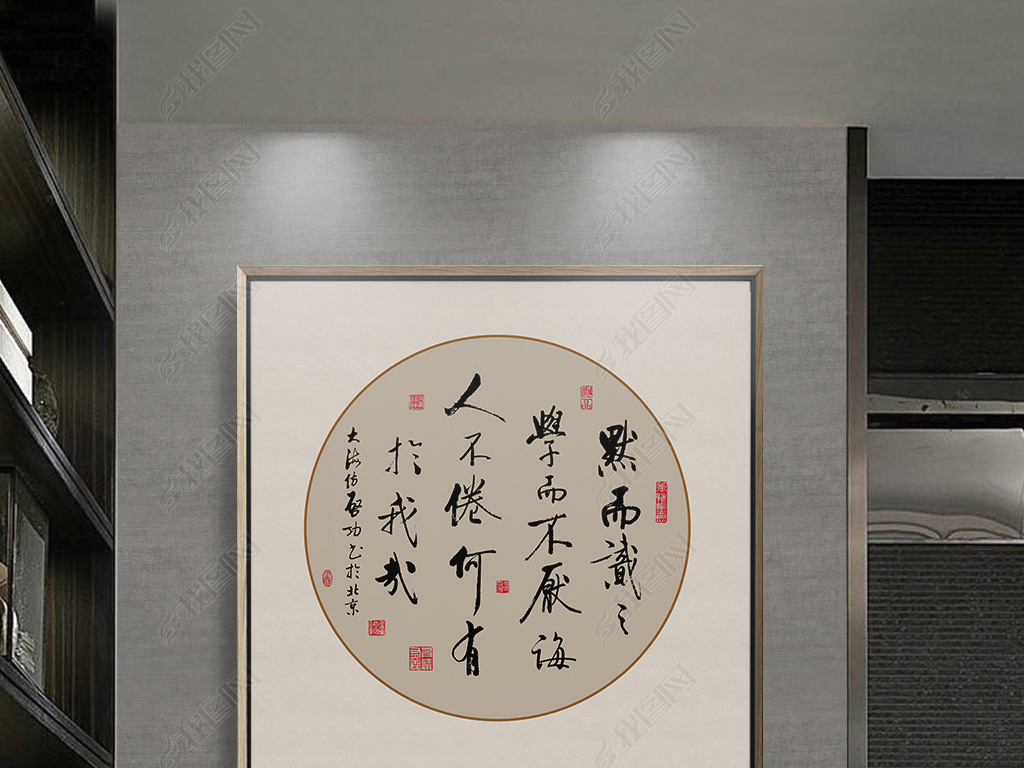 默而識之
學而不厭誨
人不倦何有
於我哉
大海仿啓功书於北京
找图网